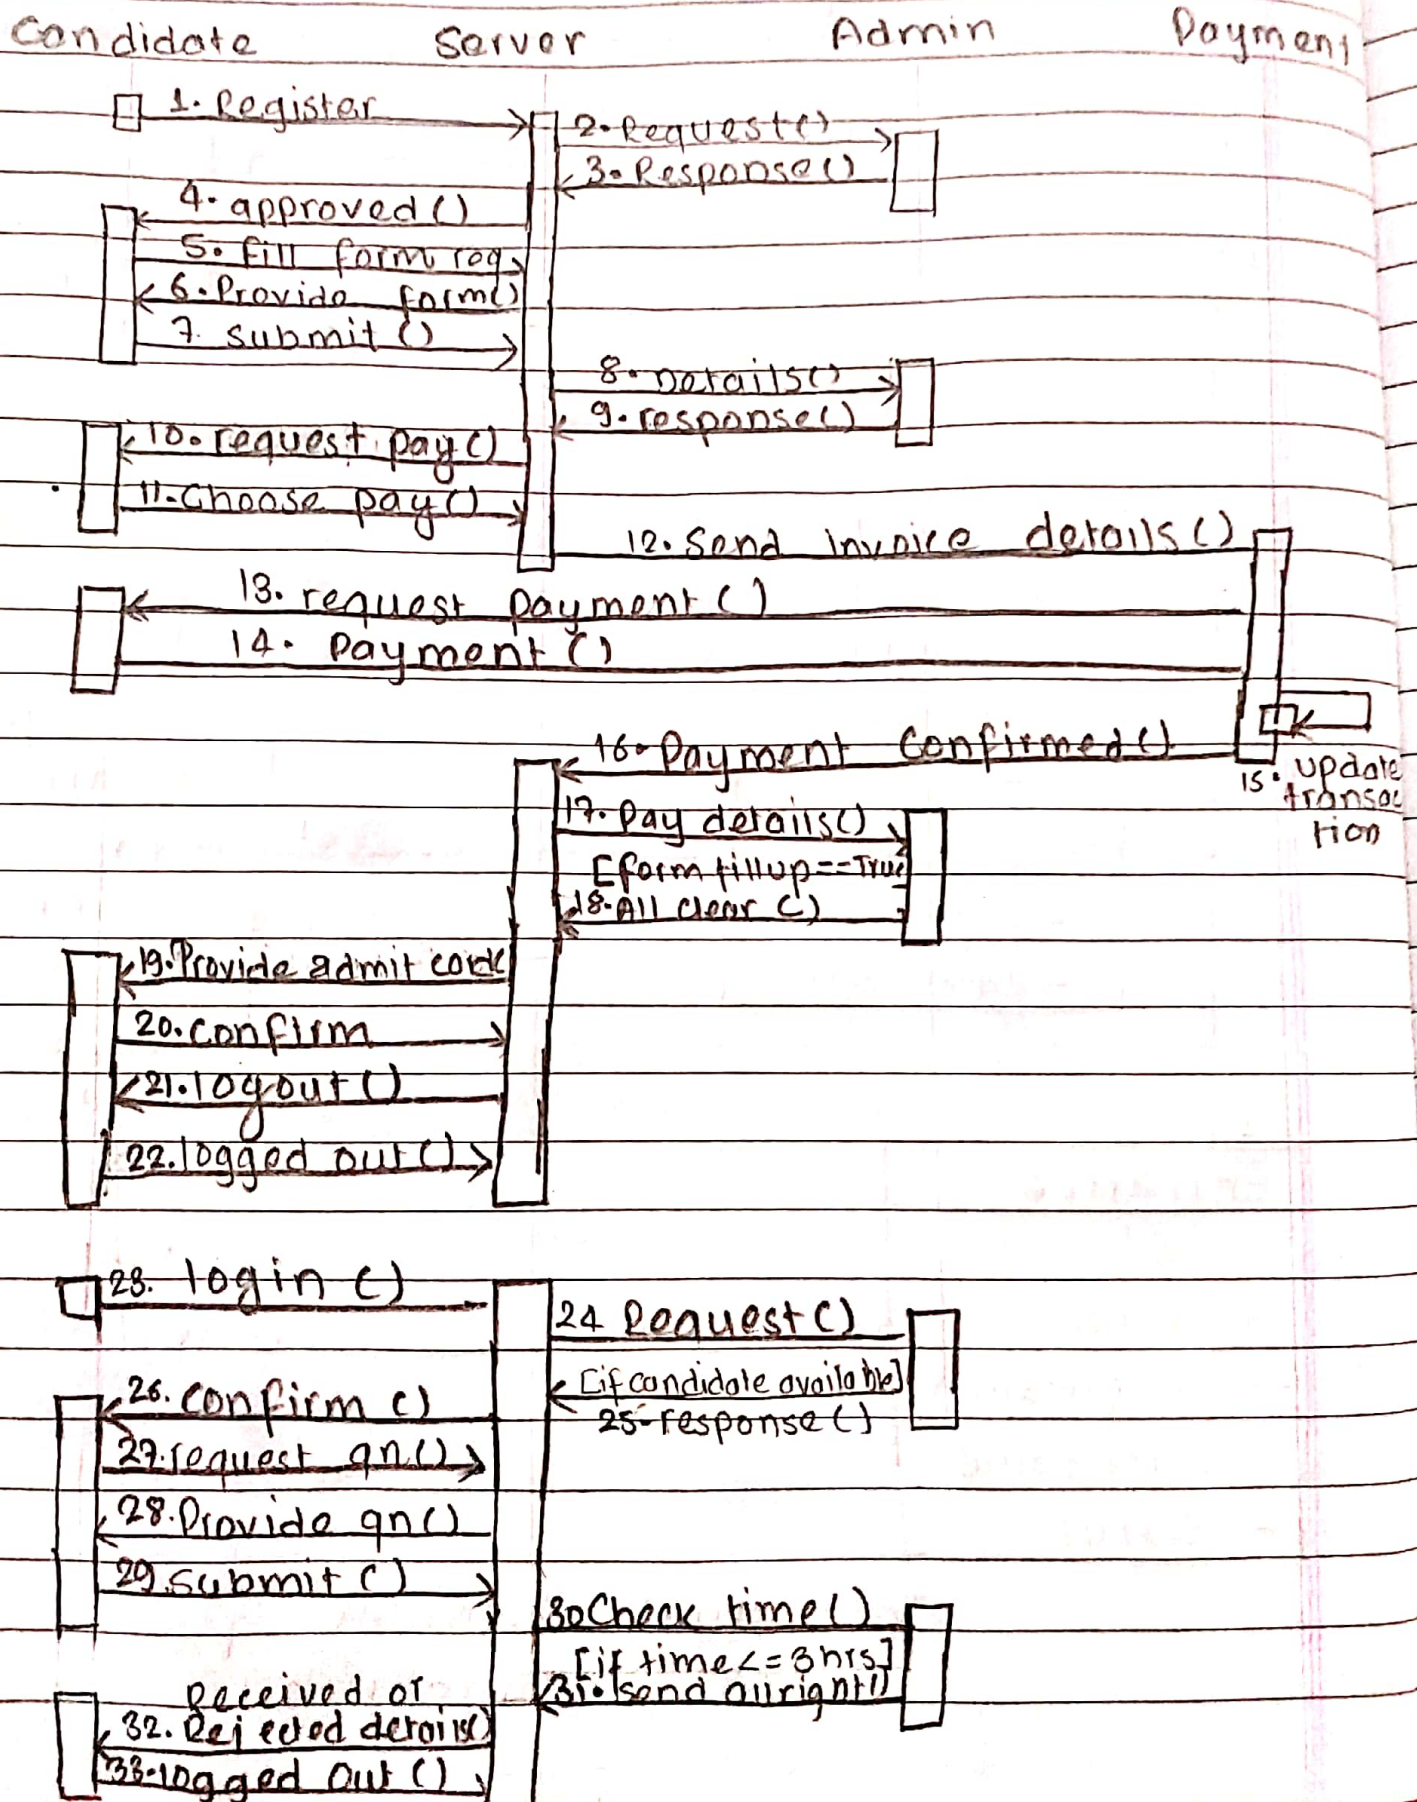 Candidate Server Admin Payment
1. Register
2. Request()
3. Response()
4. approved()
5. fill form req
6. Provide form()
7. submit()
8. Details()
9. response()
10. request pay()
11. Choose pay()
12. Send invoice details()
13. request payment()
14. Payment()
16. Payment Confirmed()
15. update
transac
tion
17. Pay details()
[form fillup==True
18. All clear()
19. Provide admit card(
20. confirm
21. logout()
22. logged out()
23. login()
24 Request()
[if candidate available]
25. response()
26. confirm()
27. request qn()
28. Provide qn()
29. submit()
30 Check time()
[if time<=3hrs]
31. send allright()
Received or
32. Rejected details()
33. logged out()